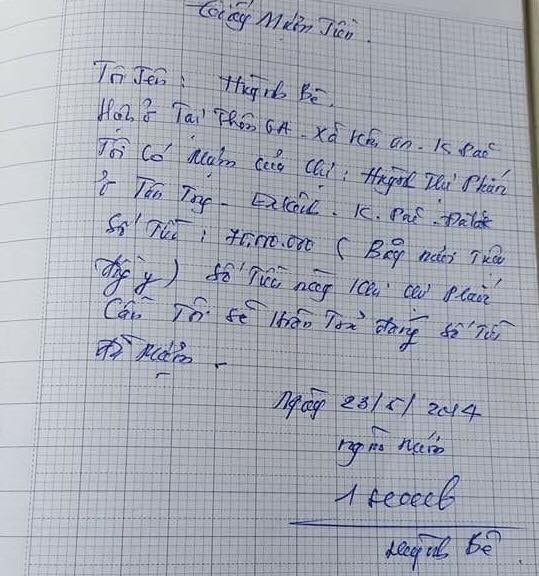 Giấy Mượn Tiền.
Tôi Tên: Huỳnh Bê.
Hiện ở Tại Thôn 6A - Xã - K Pắc
Tôi Có Mượn của Chị: Huỳnh Thị Phấn
ở Tân - K. Pắc.
Số Tiền: 70.000.000 ( Bảy mươi Triệu
đồng y ) Số Tiền này Khi Chị Phấn
Cần Tôi sẽ Hoàn Trả đúng số Tiền
đã Mượn -
Ngày 23/5/2014
người mượn
Huỳnh Bê.